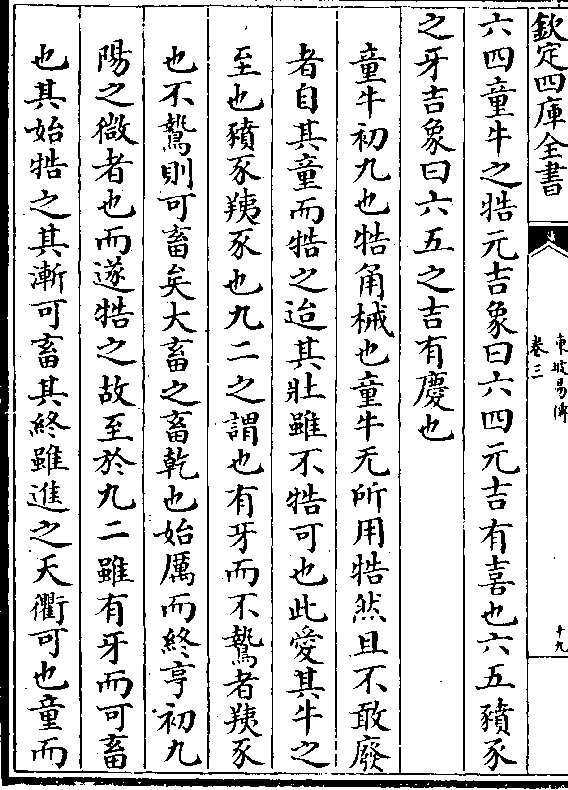 欽定四庫全書
東坡易傳
卷三
十九
六四童牛之牿元吉象曰六四元吉有喜也六五豶豕
之牙吉象曰六五之吉有慶也
童牛初九也牿角械也童牛无所用牿然且不敢廢
者自其童而牿之迨其壯雖不牿可也此愛其牛之
至也豶豕羠豕也九二之謂也有牙而不鷙者羠豕
也不鷙則可畜矣大畜之畜乾也始厲而終亨初九
陽之微者也而遂牿之故至於九二雖有牙而可畜
也其始牿之其漸可畜其終雖進之天衢可也童而